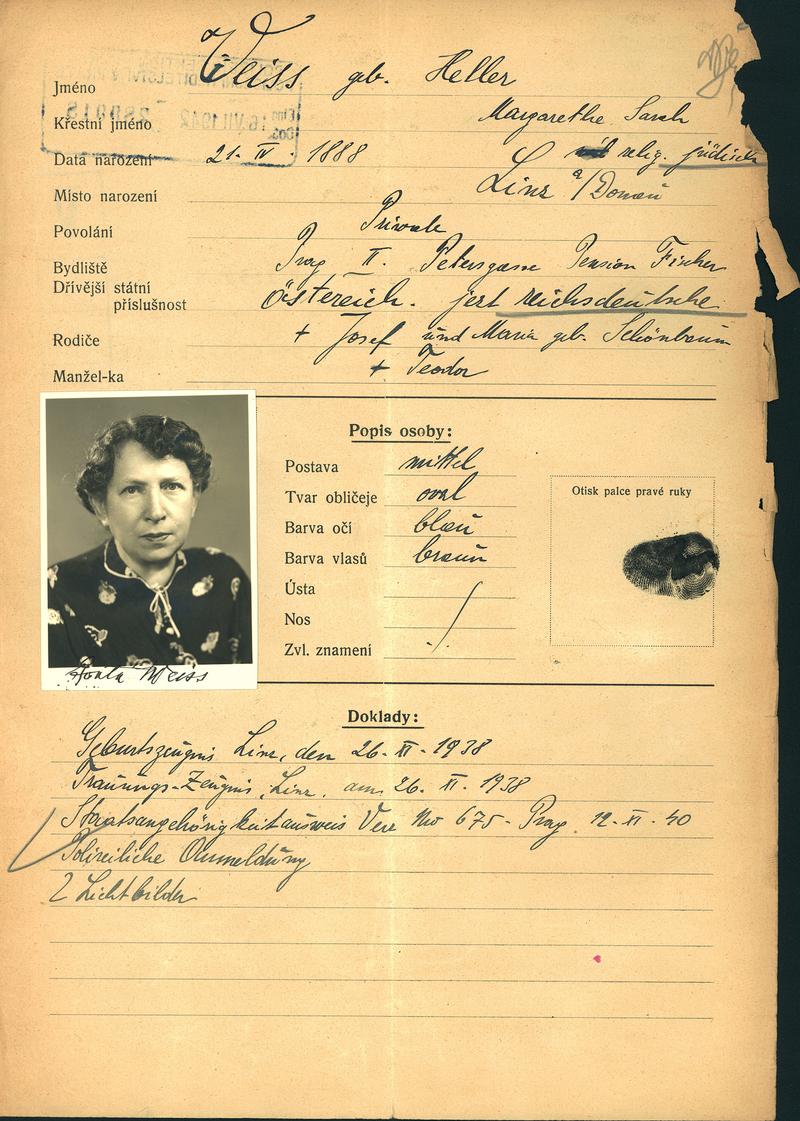 Weiss geb. Heller
Jméno
Margarethe Sarah
Křestní jméno
Data narození 21. IV. 1888 relig. jüdisch
Místo narození Linz a/Donau
Povolání Private
Bydliště Prag II. Petersgasse Pension Fischer
Dřívější státní
příslušnost Östereich. jezt reichsdeutsche
Rodiče + Josef und Maria geb. Schönbaum
Manžel-ka + Teodor
Popis osoby:
Postava mittel
Tvar obličeje oval
Barva očí blau
Barva vlasů braun
Ústa
Nos
Zvl. znamení
Otisk palce pravé ruky
Weiss
Doklady:
Geburtszeugnis Linz, den 26. XI. 1938
Trauungs-Zeugnis, Linz, am 26. XI. 1938
Staatsangehörigkeitausweis No 675 - Prag 12. XI. 40
Polizeiliche Anmeldung
2 Lichtbilder